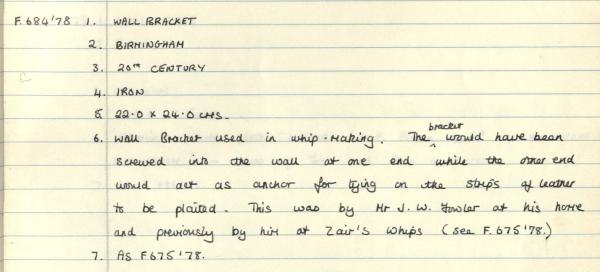 F.684'78 1. WALL BRACKET
2. BIRMINGHAM
3. 20TH CENTURY
4. IRON
5. 22.0 x 24.0 CMS.
6. Wall Bracket used in whip-making. The bracket would have been
screwed into the wall at one end while the other end
would act as anchor for tying on the strips of leather
to be plaited. This was by Mr J. W. Fowler at his home
and previously by him at Zair's Whips (see F.675'78.)
7. As F675'78.